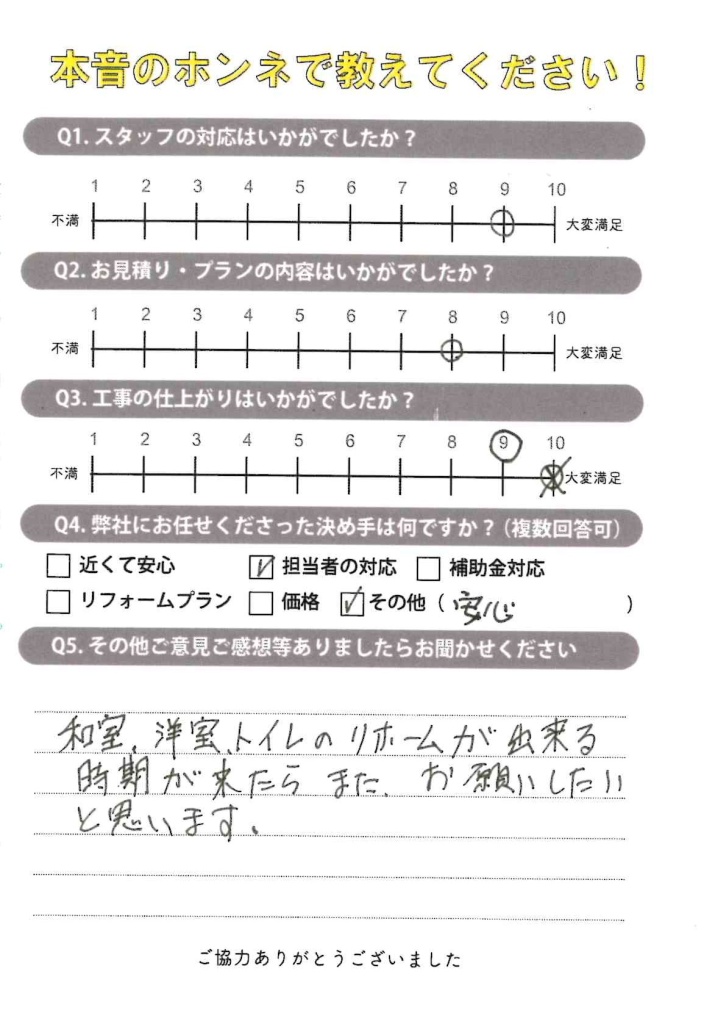 本音のホンネで教えてください！
Q1. スタッフの対応はいかがでしたか？
1 2 3 4 5 6 7 8 9 10
不満 大変満足
Q2. お見積り・プランの内容はいかがでしたか？
1 2 3 4 5 6 7 8 9 10
不満 大変満足
Q3. 工事の仕上がりはいかがでしたか？
1 2 3 4 5 6 7 8 9 10
不満 大変満足
Q4. 弊社にお任せくださった決め手は何ですか？（複数回答可）
近くて安心 担当者の対応 補助金対応
リフォームプラン 価格 その他（安心）
Q5. その他ご意見ご感想等ありましたらお聞かせください
和室、洋室、トイレのリホームが出来る
時期が来たらまた、お願いしたい
と思います。
ご協力ありがとうございました